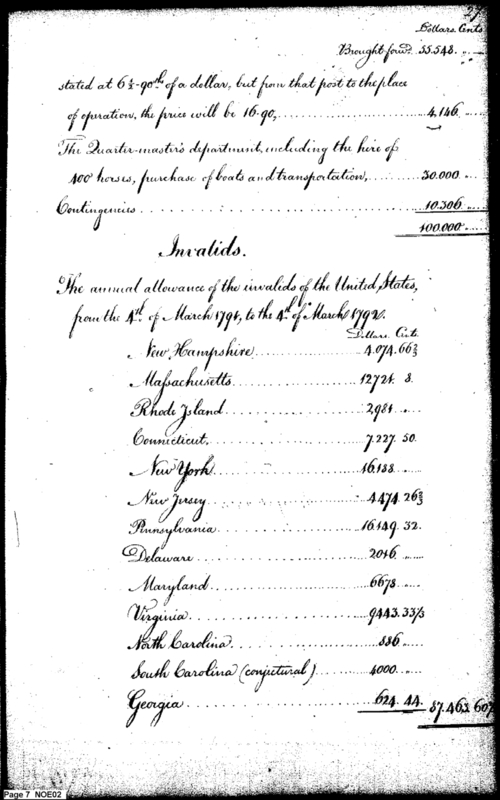 Dollars. Cents
Brought forwd. 55.548. "
stated at of a dollar, but from that post to the place
of operation, the price will be 16-90, 4.146
The Quarter-master's department, including the hire of
400 horses, purchase of boats and transportation, 30.000
Contingencies 10.306
100.000
Invalids.
The annual allowance of the invalids of the United States,
from the 4th. of March 1791, to the 4th. of March 1792.
Dollars. Cts.
New Hampshire 4.074.66⅔
Massachusetts 12721. 8.
Rhode Island 2.981
Connecticut. 7.227. 50.
New York 16.188
New Jersey 4.474.26⅔
Pennsylvania 16.149. 32.
Delaware 2016
Maryland 6678
Virginia 9443.33⅓
North Carolina 886
South Carolina (conjectural) 4000
Georgia 624. 44. 87.463.60⅔
Page 7 NOE02